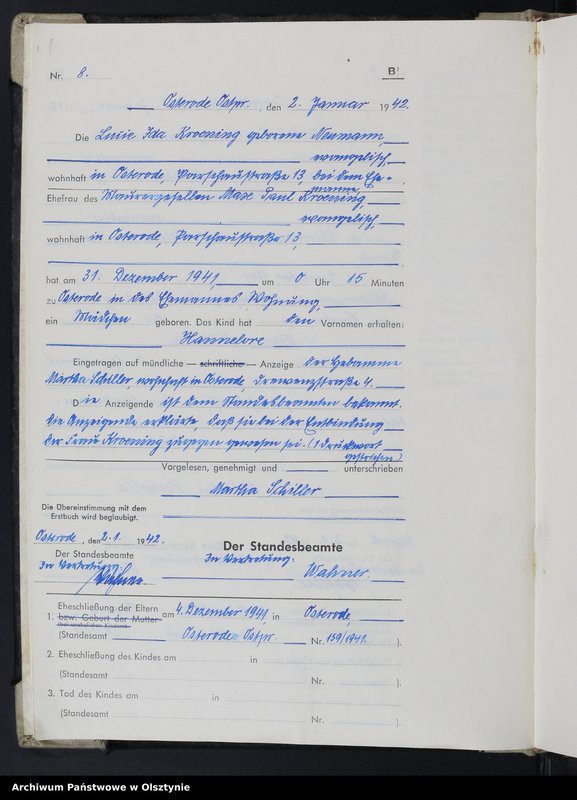 8
Nr. 8. B¹
Osterode Ostpr., den 2. Januar 1942.
Die Luise Ida Kroening geborene Neumann,
evangelisch,
wohnhaft in Osterode, straße 13, bei dem Ehe-
manne,
Ehefrau des Maurergesellen Max Paul Kroening,
evangelisch,
wohnhaft in Osterode, straße 13,
hat am 31. Dezember 1941, um 0 Uhr 15 Minuten
zu Osterode in des Ehemannes Wohnung,
ein Mädchen geboren. Das Kind hat den Vornamen erhalten:
Hannelore
Eingetragen auf mündliche — schriftliche — Anzeige der Hebamme
Martha Schiller, wohnhaft in Osterode, Drewenzstraße 4.
Die Anzeigende ist dem Standesbeamten bekannt.
Die Anzeigende erklärte, daß sie bei der Entbindung
der Frau Kroening zugegen gewesen sei. (1 Druckwort
gestrichen.)
Vorgelesen, genehmigt und unterschrieben
Martha Schiller
Die Übereinstimmung mit dem
Erstbuch wird beglaubigt.
Osterode, den 2.1. 1942.
Der Standesbeamte
Der Standesbeamte
In Vertretung:
In Vertretung:
Wahner.
Wahner.
Eheschließung der Eltern
1. bzw. Geburt der Mutter am 4. Dezember 1941, in Osterode,
(bei unehelichen Kindern)
(Standesamt Osterode Ostpr. Nr. 159/1941. ).
2. Eheschließung des Kindes am in
(Standesamt Nr. ).
3. Tod des Kindes am in
(Standesamt Nr. ).
Archiwum Państwowe w Olsztynie